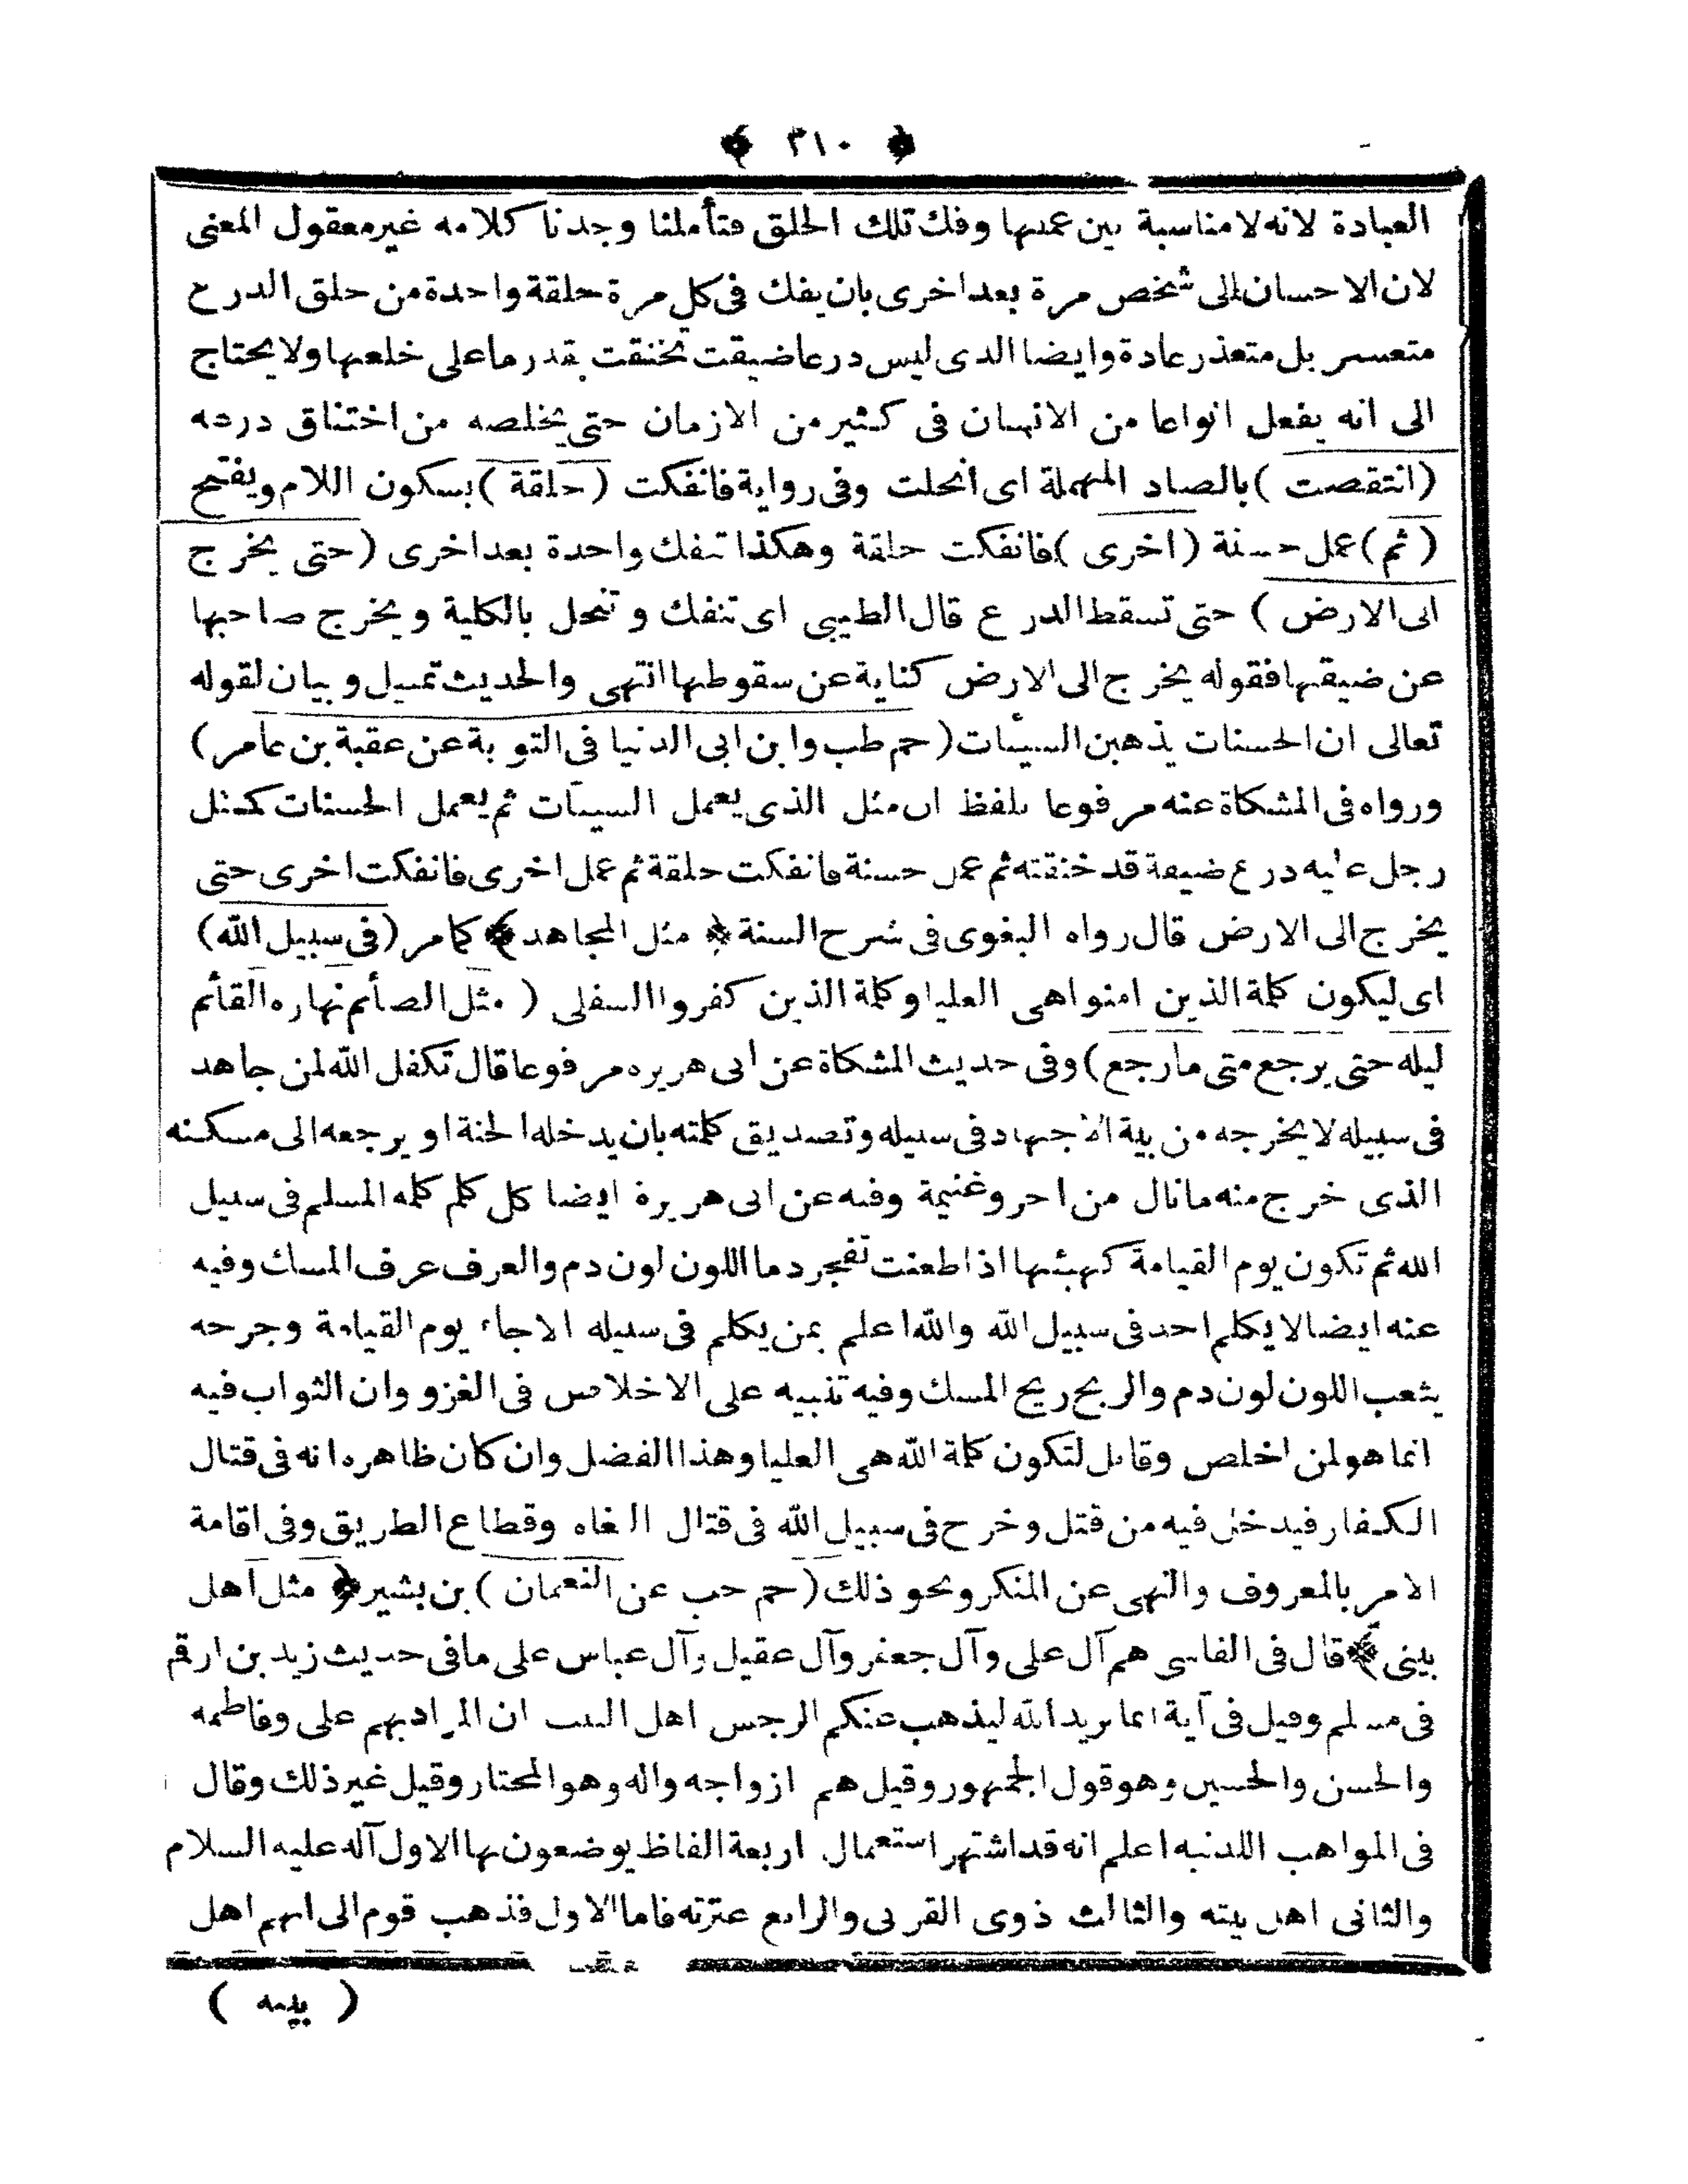 ﴿ ٣١٠ ﴾
العبادة لانه لا مناسبة بين عملها وفك تلك الحلق فتأملنا وجدنا كلامه غير معقول المعنى
لان الاحسان الى شخص مرة بعد اخرى بان يفك فى كل مرة حلقة واحدة من حلق الدرع
متعسر بل متعذر عادة وايضا الذى ليس درعا ضيقت تخنقت بقدر ما على خلعها ولا يحتاج
الى انه يفعل انواعا من الانسان فى كثير من الازمان حتى يخلصه من اختناق درعه
(انتقصت) بالصاد المهملة اى انحلت وفى رواية فانفكت (حلقة) بسكون اللام ويفتح
(ثم) عمل حسنة (اخرى) فانفكت حلقة وهكذا تنفك واحدة بعد اخرى (حتى يخرج
الى الارض) حتى تسقط الدرع قال الطيبى اى تنفك وتنحل بالكلية ويخرج صاحبها
عن ضيقها فقوله يخرج الى الارض كناية عن سقوطها انتهى والحديث تمثيل وبيان لقوله
تعالى ان الحسنات يذهبن السيئات (حم طب وابن ابى الدنيا فى التوبة عن عقبة بن عامر)
ورواه فى المشكاة عنه مرفوعا بلفظ ان مثل الذى يعمل السيئات ثم يعمل الحسنات كمثل
رجل عليه درع ضيقة قد خنقته ثم عمل حسنة فانفكت حلقة ثم عمل اخرى فانفكت اخرى حتى
يخرج الى الارض قال رواه البغوى فى شرح السنة ﴿ مثل المجاهد ﴾ كمامر (فى سبيل الله)
اى ليكون كلمة الذين امنوا هى العليا وكلمة الذين كفروا السفلى (مثل الصائم نهاره القائم
ليله حتى يرجع متى مارجع) وفى حديث المشكاة عن ابى هريره مرفوعا قال تكفل الله لمن جاهد
فى سبيله لا يخرجه من بيته الا جهاد فى سبيله وتصديق كلمته بان يدخله الجنة او يرجعه الى مسكنه
الذى خرج منه مانال من اجر وغنيمة وفيه عن ابى هريرة ايضا كل كلم كلمه المسلم فى سبيل
الله ثم تكون يوم القيامة كهيئتها اذا طعنت تفجر دما اللون لون دم والعرف عرف المسك وفيه
عنه ايضا لا يكلم احد فى سبيل الله والله اعلم بمن يكلم فى سبيله الا جاء يوم القيامة وجرحه
يثعب اللون لون دم والريح ريح المسك وفيه تنبيه على الاخلاص فى الغزو وان الثواب فيه
انما هو لمن اخلص وقاتل لتكون كلمة الله هى العليا وهذا الفضل وان كان ظاهره انه فى قتال
الكفار فيدخل فيه من قتل وخرج فى سبيل الله فى قتال البغاه وقطاع الطريق وفى اقامة
الامر بالمعروف والنهى عن المنكر ونحو ذلك (حم حب عن النعمان) بن بشير ﴿ مثل اهل
بيتى ﴾ قال فى الفاسى هم آل على وآل جعفر وآل عقيل وآل عباس على مافى حديث زيد بن ارقم
فى مسلم وقيل فى آية انما يريد الله ليذهب عنكم الرجس اهل البيت ان المراد بهم على وفاطمه
والحسن والحسين وهو قول الجمهور وقيل هم ازواجه واله وهو المختار وقيل غير ذلك وقال
فى المواهب اللدنيه اعلم انه قد اشتهر استعمال اربعة الفاظ يوضعون بها الاول آله عليه السلام
والثانى اهل بيته والثالث ذوى القربى والرابع عترته فاما الاول فذهب قوم الى انهم اهل
( بيته )